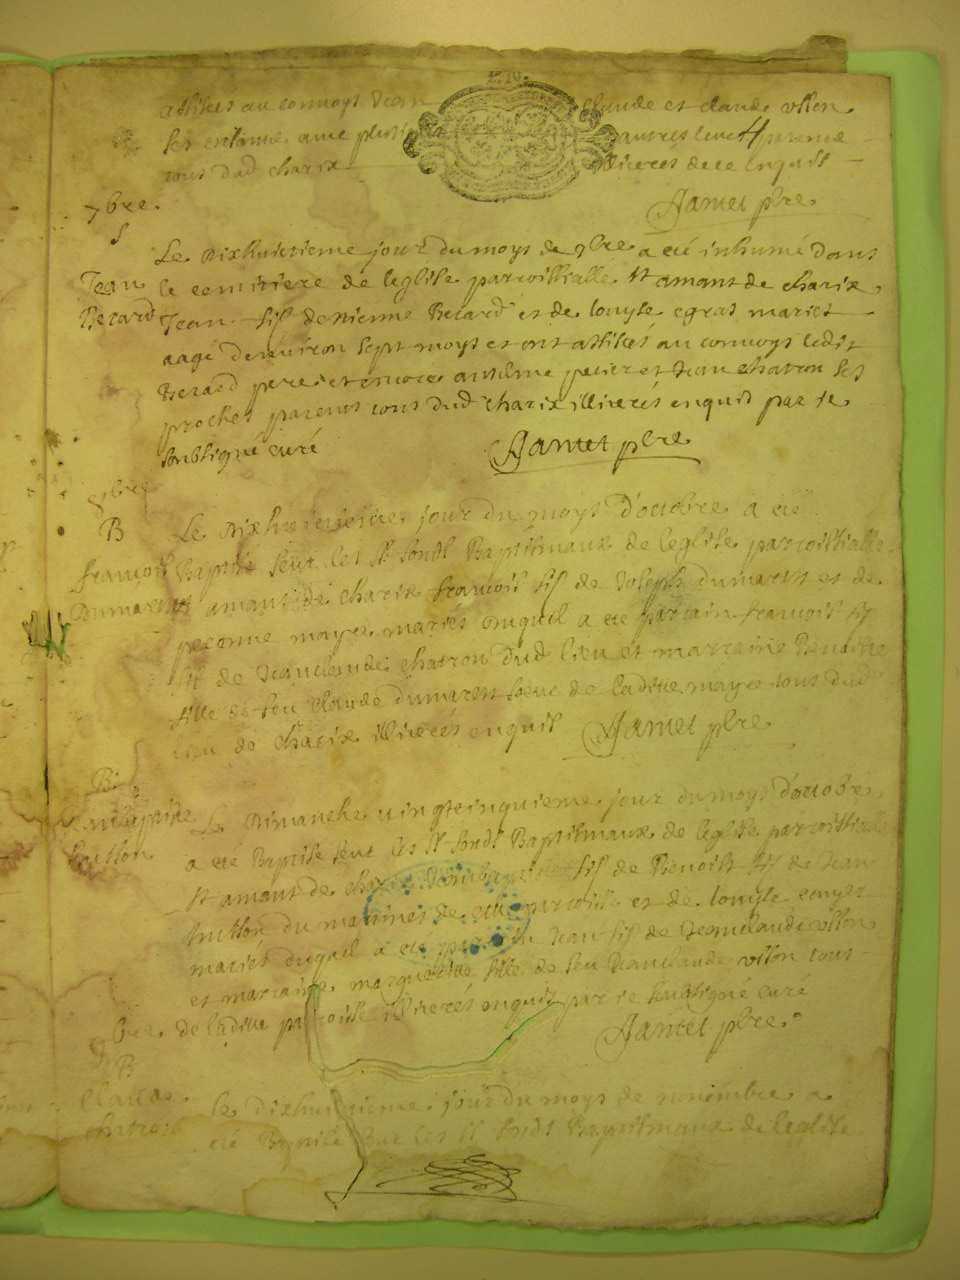 assistes au convoys Jean Claude et claude ollon
ses enfans avec plusi autres
tous dud charix illiteres de ce enquis
Jantet pbre
7bre
S
Le Dixhuitieme jour du moys de 7bre a eté inhumé dans
Jean le cemitiere de leglise parroissialle St amant de charix
Berard Jean fils detienne Berard et de louyse egras mariés
aagé denviron sept moys et ont assistés au convoys ledit
Berard pere et encore antelme et Jean chatron ses
proches parents tous dud charix illiterés enquis par Je
soubsigné curé
Jantet pbre
8bre
B Le Dixhuitieme jour du moys d'octobre a eté
francois Baptisé seur les St fondz Baptismaux de leglise parroissialle
Dumarest St amant de charix francois fils de Joseph dumarest et de
peronne mariés enquil a eté parrain francois fils
de Jeanclaude chatron dud lieu et marraine Benoitte
fille de feu claude dumarest soeur de ladite tous dud
lieu de charix illiterés enquis Jantet pbre
B
Le Dimanche vingtcinquieme jour du moys d'octobre
a eté Baptise seur les St fondz Baptismaux de leglise parroissialle
St amant de charix fils de Benoist fils de Jean
de parroisse et de louyse
mariés enquil a eté parrain Jean fils de Jeanclaude ollon
et marraine fille de feu Jeanclaude ollon tous
9bre de ladite parroisse illiterés enquis par Je soubsigné curé
Jantet pbre
B
Claude Le dixhuitieme jour du moys de novembre a
chatron eté Baptisé seur les St fondz Baptismaux de leglise